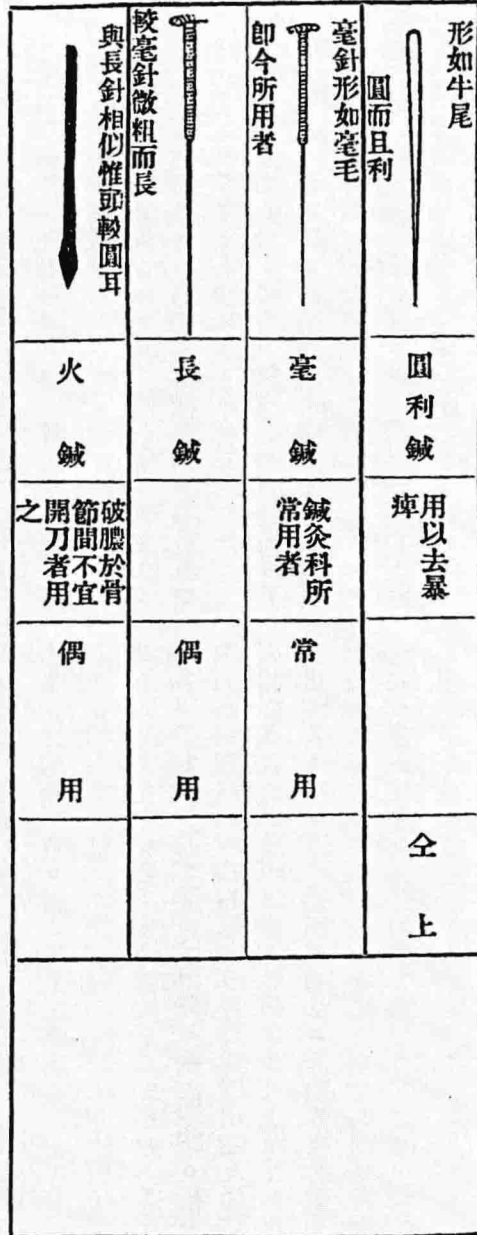 形如牛尾
圓而且利
圓利鍼
用以去暴
痺
仝上
毫針形如毫毛
卽今所用者
毫鍼
鍼灸科所
常用者
常用
較毫針微粗而長
長鍼
偶用
與長針相似惟頭較圓耳
火鍼
破膿於骨
節間不宜
開刀者用
之
偶用